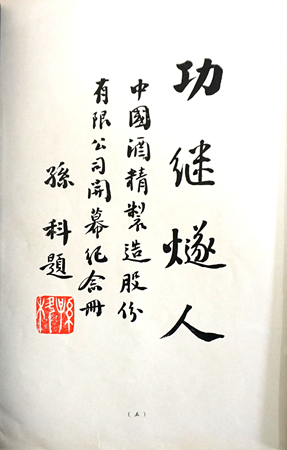 功继燧人
中國酒精製造股份
有限公司開幕纪念册
孫科題
孫科
（五）